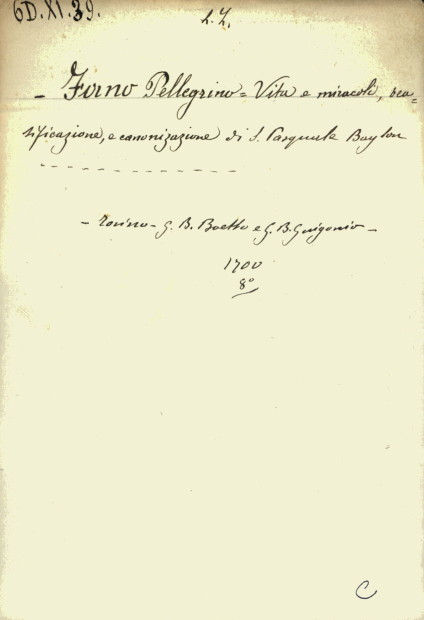 6D.XI.39.
L.Z.
- Forno Pellegrino = Vita e miracoli, bea=
tificazione, e canonizazione di S. Pasquale Baylon
- Torino - G. B. Boetto e G. B. Guigonio -
1700
8°
C